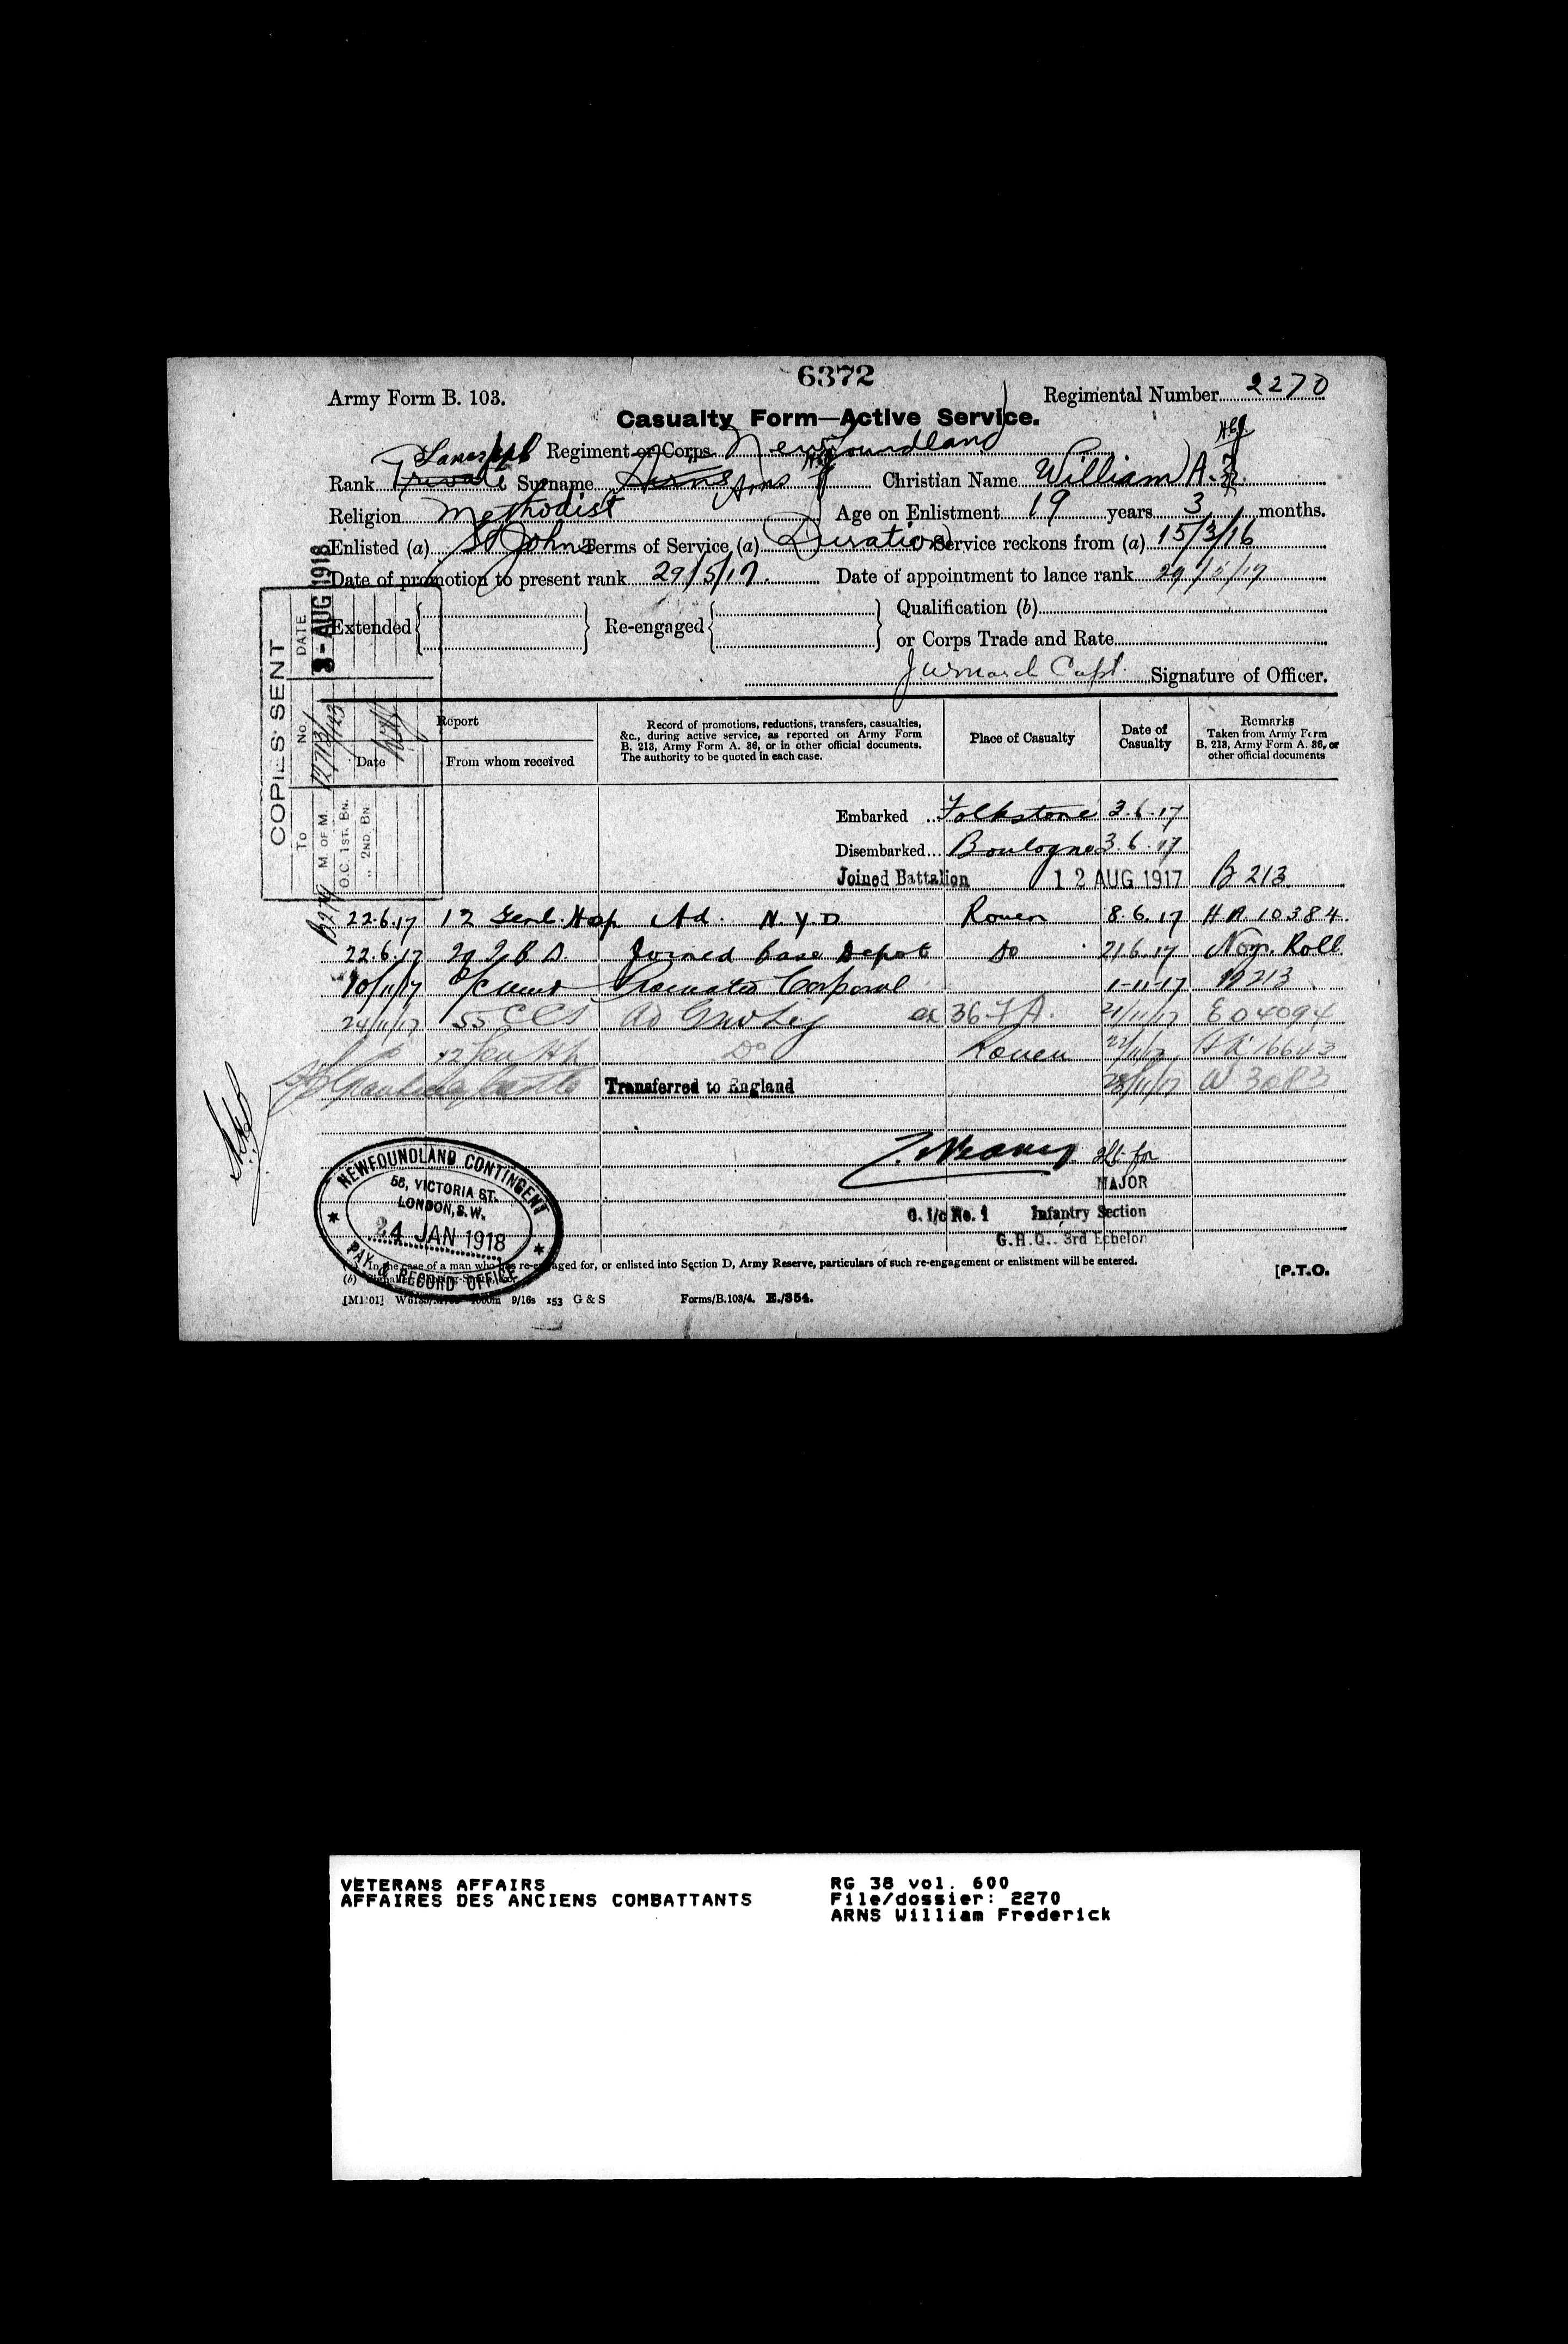 6372
Army Form B. 103.
Regimental Number 2270
Casualty Form—Active Service.
Regiment or Corps Newfoundland
Rank Private Surname Arns Christian Name William A.
Religion Methodist Age on Enlistment 19 years 3 months.
Enlisted (a) St Johns Terms of Service (a) Duration Service reckons from (a) 15/3/16
Date of promotion to present rank 29/5/17. Date of appointment to lance rank 29/5/17
Extended Re-engaged Qualification (b)
or Corps Trade and Rate
Capt. Signature of Officer.
COPIES SENT
To No. DATE
M. OF M. 3 - AUG 1918
O.C. 1ST. BN.
,, 2ND. BN.
B279
Report
Date From whom received
Record of promotions, reductions, transfers, casualties,
&c., during active service, as reported on Army Form
B. 213, Army Form A. 36, or in other official documents.
The authority to be quoted in each case.
Place of Casualty
Date of
Casualty
Remarks
Taken from Army Form
B. 213, Army Form A. 36, or
other official documents
Embarked .. Folkstone 3.6.17
Disembarked... Boulogne 3.6.17
Joined Battalion 12 AUG 1917 B 213
22.6.17 12 Genl. Hosp Ad. N.Y.D Rouen 8.6.17 HA 10384.
22.6.17 Joined Base Depot Do 21.6.17 Nom. Roll
10/11/17 Corporal 1-11-17 B213
24/11/17 55 CCS Ad GSW Leg ex 36 FA. 21/11/17 E04094
12 Gen Do Rouen 22/11/17 HA 16643
Transferred to England 28/11/17 W 3083
Lt. for
MAJOR
O. i/c No. 1 Infantry Section
G.H.Q. 3rd Echelon
NEWFOUNDLAND CONTINGENT
58, VICTORIA ST.
LONDON, S.W.
24 JAN 1918
PAY & RECORD OFFICE
In the case of a man who has re-engaged for, or enlisted into Section D, Army Reserve, particulars of such re-engagement or enlistment will be entered.
(b)
[P.T.O.
9/16s 153 G & S Forms/B.103/4. E./354.
VETERANS AFFAIRS
AFFAIRES DES ANCIENS COMBATTANTS
RG 38 vol. 600
File/dossier: 2270
ARNS William Frederick